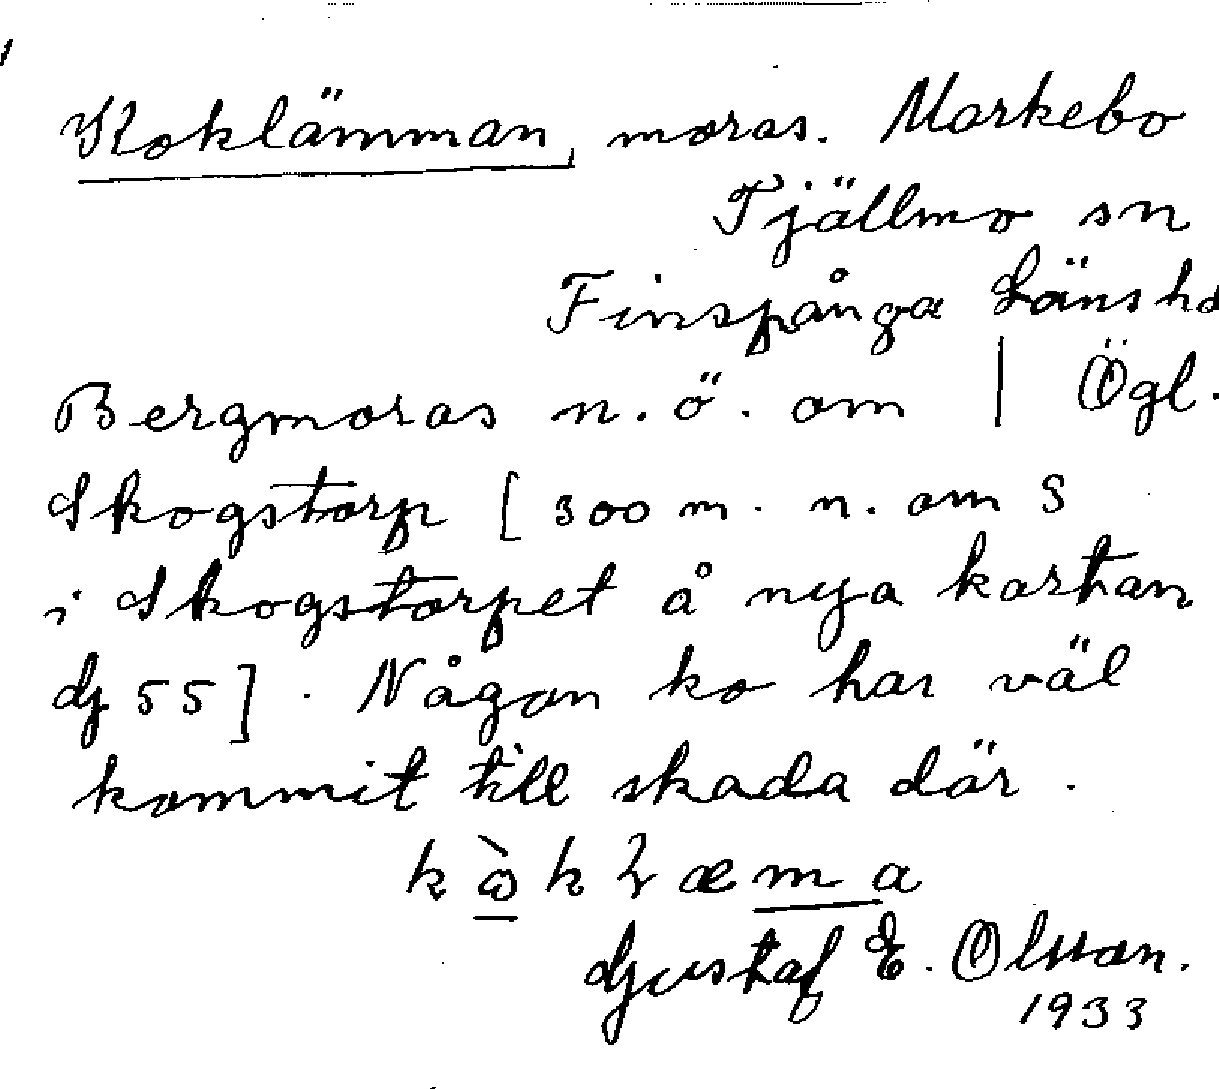 Koklämman, moras. Markebo
Tjällmo sn
Finspånga Länshd
Bergmoras n.ö. om | Ögl.
Skogstorp [300 m. n. om S
i Skogstorpet å nya kartan
dj 55]. Någon ko har väl
kommit till skada där.
Gustaf E. Olsson.
1933